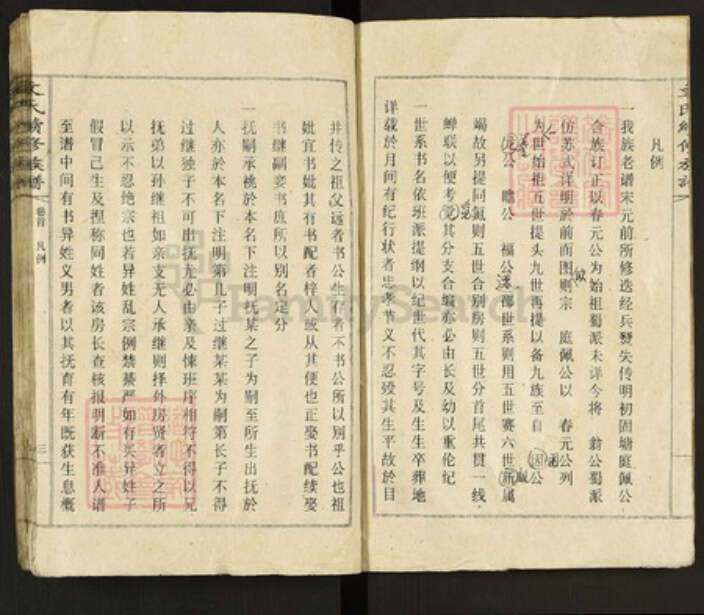 凡例
一我族老谱宋元前所修迭经兵燹失传明初固塘庭佩公
合族订正以春元公为始祖蜀派未详今将 翁公蜀派
仿苏式详明於前而图则宗 庭佩公以 春元公列
为世始祖五世提头九世再提以备九族至自 公
公 瞻公 福公 部世系则用五世赛六世 属
竭故另提同氮则五世合别房则五世分首尾共贯一线
蝉联以便考 其分支合编亦必由长及幼以重伦纪
一世系书名依班派提纲以纪世代其字号及生卒葬地
详载於月间有纪行状者忠孝节义不忍殁其生平故於目
文氏续修族谱
卷首 凡例
三
并传之祖父远者书公生存者不书公所以别乎公也祖
妣宜书妣其有书配者梓人或从其便也正娶书配续娶
书继副妾书庶所以别名定分
一抚嗣承祧於本名下注明抚某之子为嗣至所生出抚於
人亦於本名下注明第几子过继某某为嗣第长子不得
过继独子不可出抚尤必由亲及悚班序相符不得以兄
抚弟以孙继祖如亲支无人承继则择外房贤者立之所
以示不忍绝宗也若异姓乱宗例禁綦严如有买异姓子
假冒己生及捏称同姓者该房长查核报明断不准入谱
至谱中间有书异姓义男者以其抚育有年既获生息概
FamilySearch